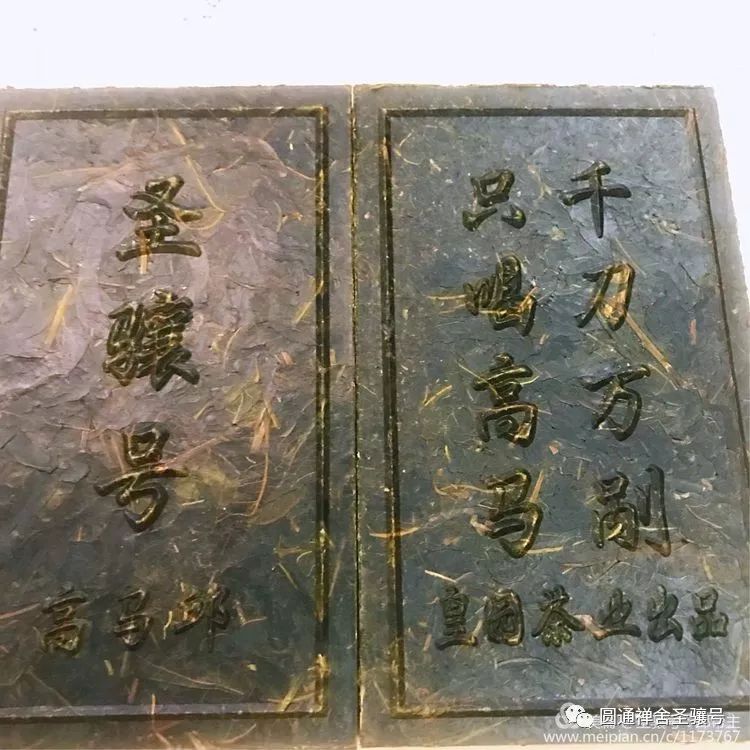 圣骧号
高马邱
千刀万剐
只喝高马
皇园茶业出品
圆通禅舍圣骧号
www.meipian.cn/c/1173767